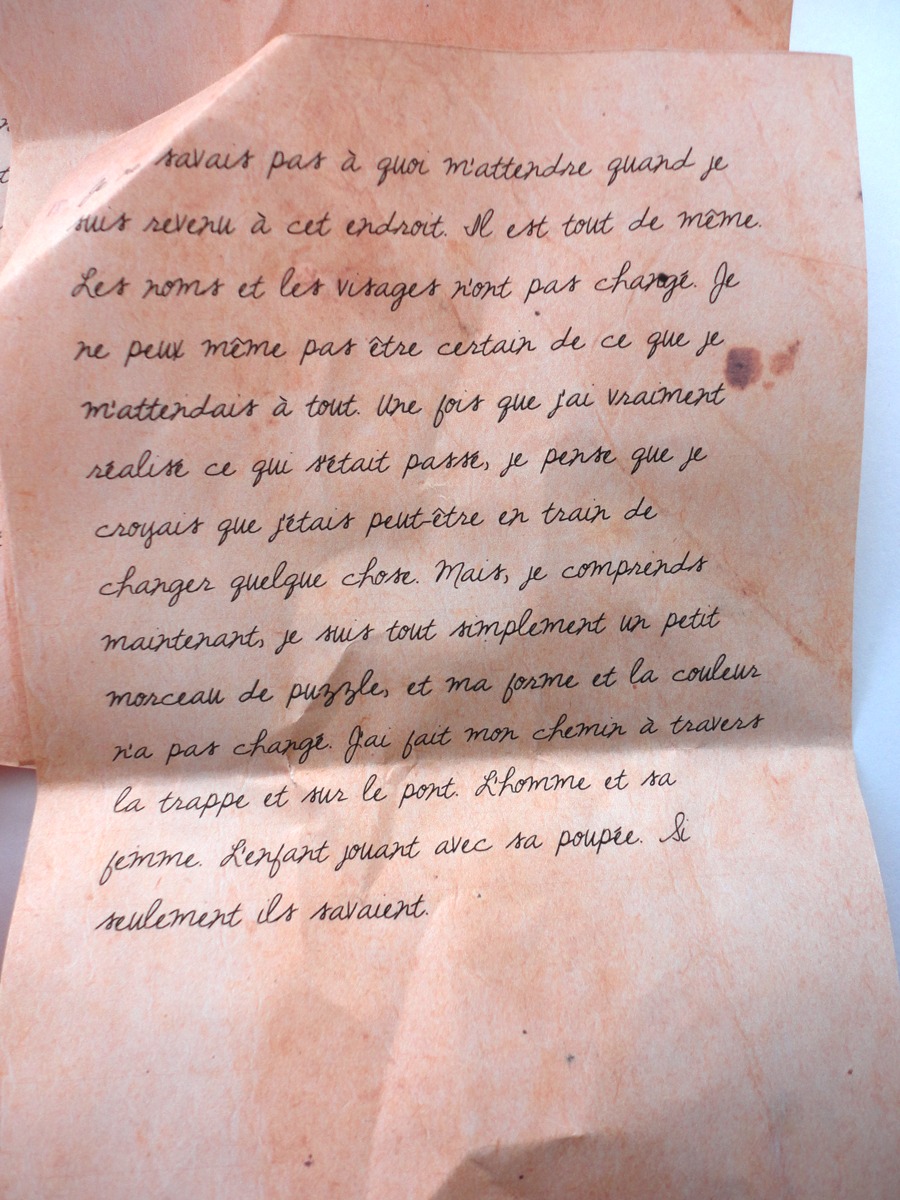 savais pas à quoi m'attendre quand je
suis revenu à cet endroit. Il est tout de même.
Les noms et les visages n'ont pas changé. Je
ne peux même pas être certain de ce que je
m'attendais à tout. Une fois que j'ai vraiment
réalisé ce qui s'était passé, je pense que je
croyais que j'étais peut-être en train de
changer quelque chose. Mais, je comprends
maintenant, je suis tout simplement un petit
morceau de puzzle, et ma forme et la couleur
n'a pas changé. J'ai fait mon chemin à travers
la trappe et sur le pont. L'homme et sa
femme. L'enfant jouant avec sa poupée. Si
seulement ils savaient.